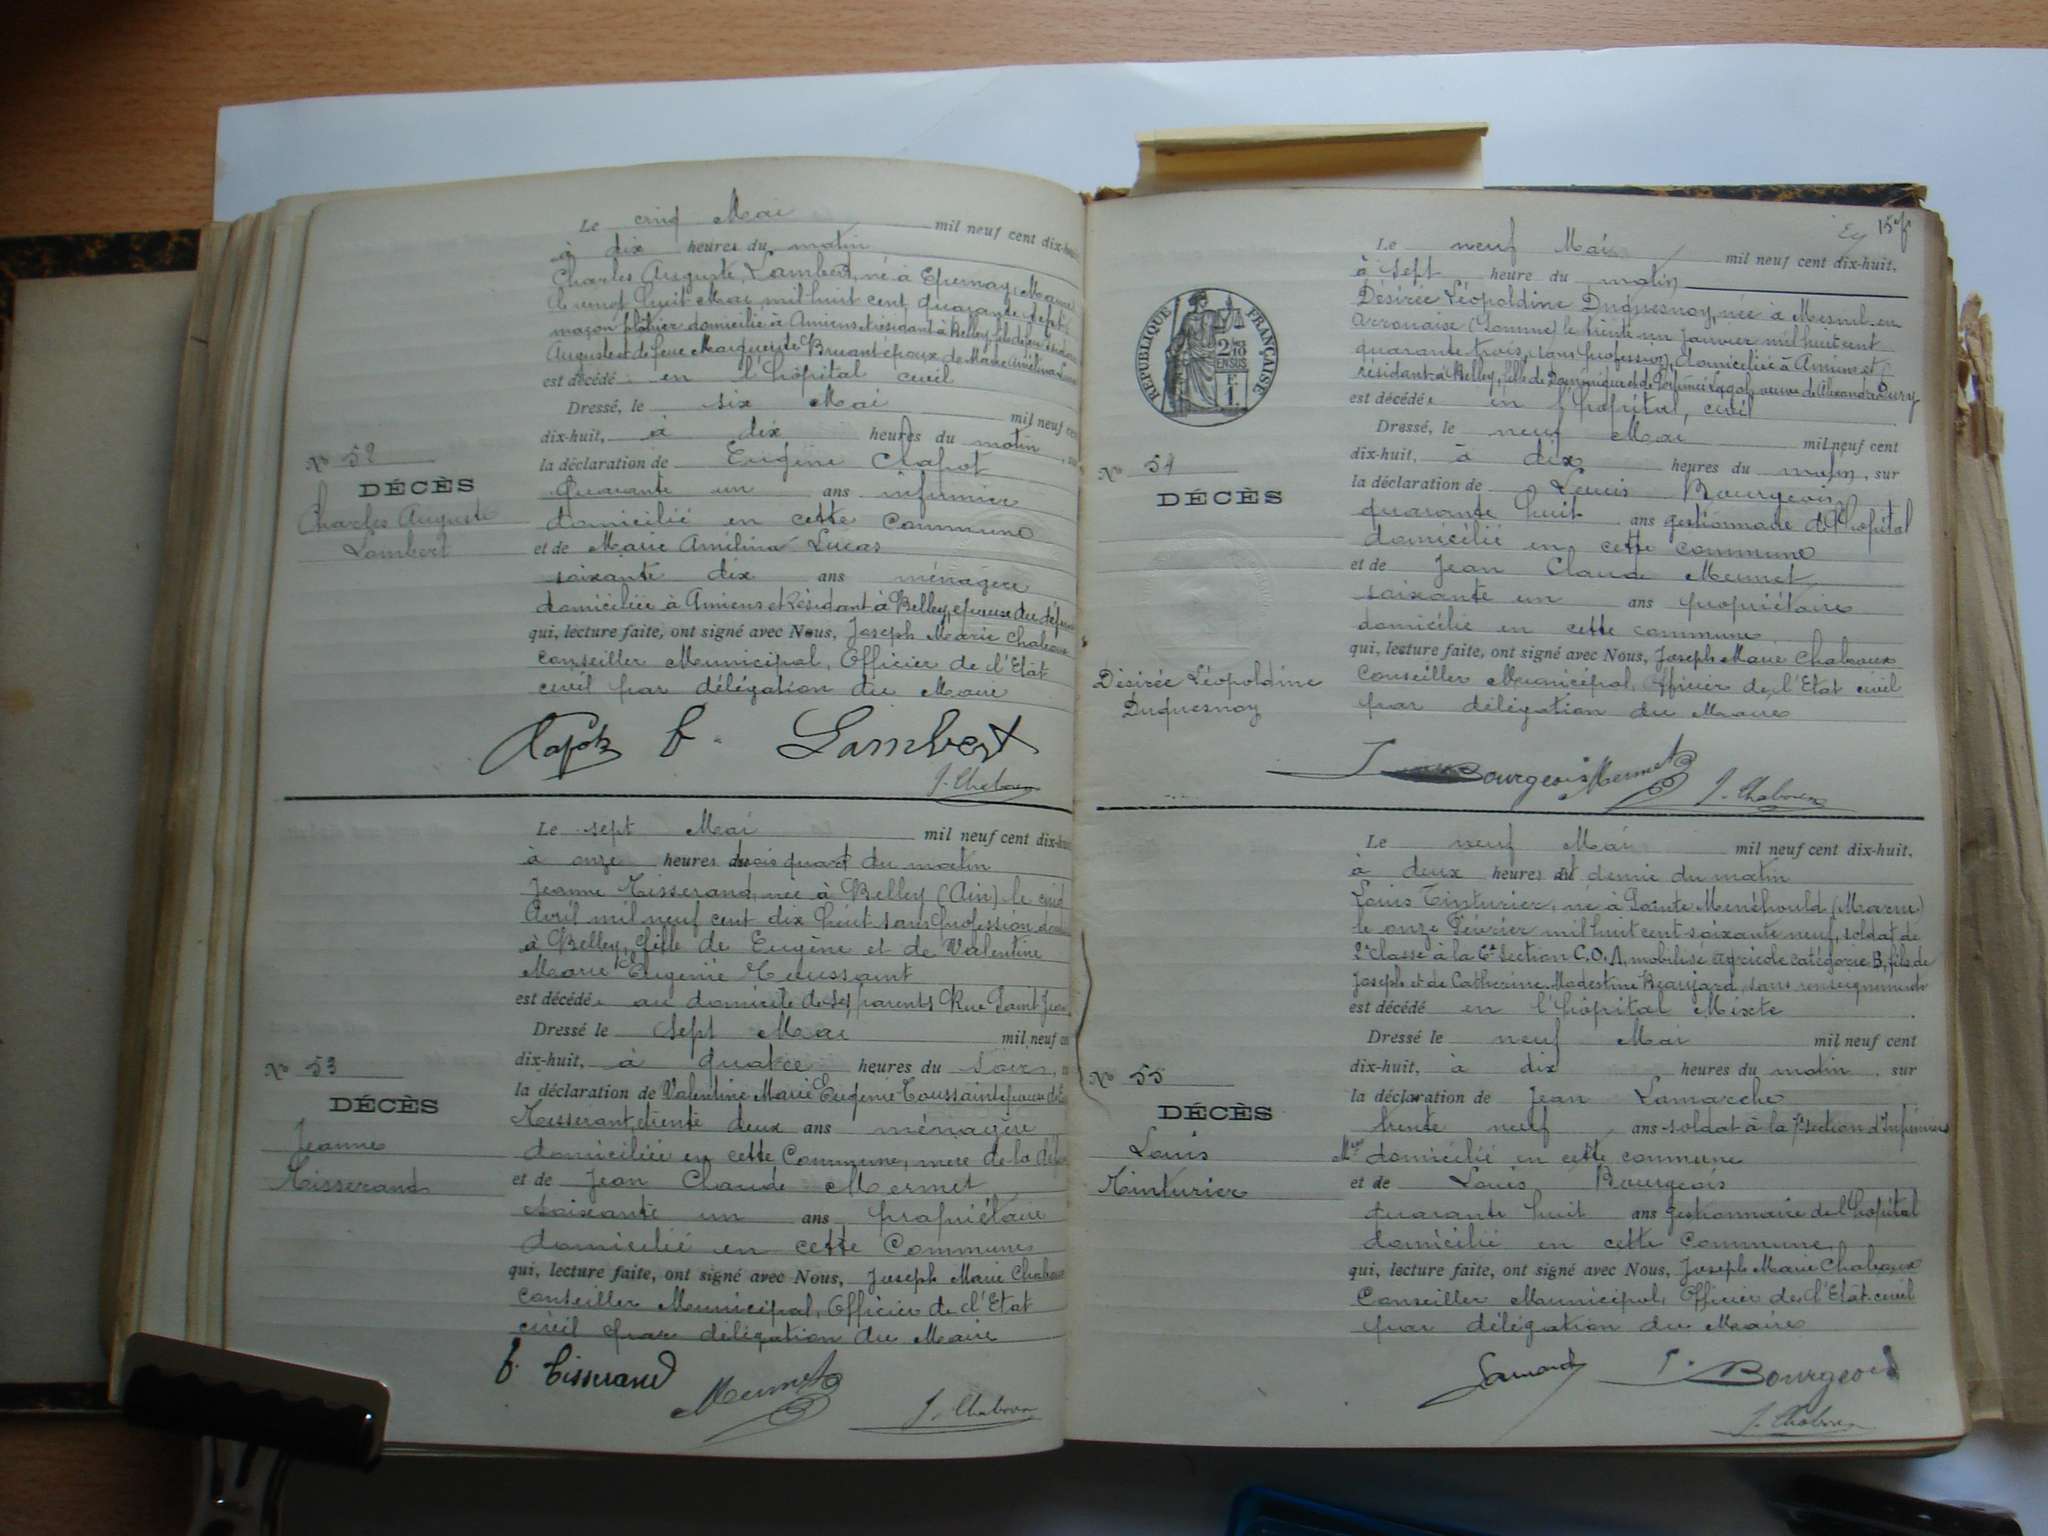 Le cinq Mai mil neuf cent dix-huit
à dix heures du matin
Charles Auguste Lambert, né à Epernay (Marne)
le vingt huit Mai mil huit cent quarante sept
maçon plâtrier domicilié à Amiens et résidant à Belley, fils de feu
Auguste et de feue Marguerite Bruant époux de Marie Amélina Lucas
est décédé en l'hôpital civil
Dressé, le six Mai mil neuf cent
dix-huit, à dix heures du matin, sur
No 52
la déclaration de Eugène Clapot
DÉCÈS
quarante un ans infirmier
Charles Auguste
Lambert
domicilié en cette commune
et de Marie Amélina Lucas
soixante dix ans ménagère
domiciliée à Amiens et Résidant à Belley, épouse du défunt
qui, lecture faite, ont signé avec Nous, Joseph Marie Chaboux
Conseiller Municipal, Officier de l'Etat
civil par délégation du Maire
Clapot f. Lambert
J. Chaboux
Le sept Mai mil neuf cent dix-huit
à onze heures trois quart du matin
Jeanne Tisserand, née à Belley (Ain) le cinq
Avril mil neuf cent dix huit sans profession
à Belley, fille de Eugène et de Valentine
Marie Eugénie Toussaint
est décédée au domicile de ses parents Rue Saint Jean
Dressé le sept Mai mil neuf cent
No 53
dix-huit, à quatre heures du soir,
DÉCÈS
la déclaration de Valentine Marie Eugénie Toussaint épouse de
Jeanne
Tisserand
Tisserant, trente deux ans ménagère
domiciliée en cette Commune, mère de la
et de Jean Claude Mermet
soixante un ans propriétaire
domicilié en cette Commune
qui, lecture faite, ont signé avec Nous, Joseph Marie Chaboux
Conseiller Municipal, Officier de l'Etat
civil par délégation du Maire
f. Tisserand Mermet J. Chaboux
Le neuf Mai mil neuf cent dix-huit,
à sept heure du matin
Désirée Léopoldine Duquesnoy, née à Mesnil-en
Arrouaise (Somme) le trente un Janvier mil huit cent
quarante trois, sans profession, domiciliée à Amiens et
résidant à Belley, fille de Dominique et de veuve de Alexandre
est décédée en l'hôpital civil
RÉPUBLIQUE FRANÇAISE
Dressé, le neuf Mai mil neuf cent
dix-huit, à dix heures du matin, sur
No 54
DÉCÈS
la déclaration de Louis Bourgeois
quarante huit ans gestionnaire de l'hopital
domicilié en cette commune
et de Jean Claude Mermet
soixante un ans propriétaire
domicilié en cette commune
qui, lecture faite, ont signé avec Nous, Joseph Marie Chaboux
Désirée Léopoldine
Duquesnoy
Conseiller Municipal, Officier de l'Etat civil
par délégation du Maire
Bourgeois Mermet J. Chaboux
Le neuf Mai mil neuf cent dix-huit,
à deux heures et demie du matin
Louis Tinturier, né à Sainte Menéhould (Marne)
le onze Février mil huit cent soixante neuf, soldat de
2e classe à la 6e Section C.O.A, mobilisé agricole catégorie B, fils de
Joseph et de Catherine Modestine Beaujard, sans renseignements
est décédé en l'hôpital Mixte
Dressé le neuf Mai mil neuf cent
dix-huit, à dix heures du matin, sur
No 55
DÉCÈS
Louis
Tinturier
la déclaration de Jean Lamarche
trente neuf ans soldat à la 7e section d'Infirmiers
Mres domicilié en cette commune
et de Louis Bourgeois
quarante huit ans gestionnaire de l'hopital
domicilié en cette commune
qui, lecture faite, ont signé avec Nous, Joseph Marie Chaboux
Conseiller Municipal, Officier de l'Etat civil
par délégation du Maire
J. Bourgeois
J. Chaboux